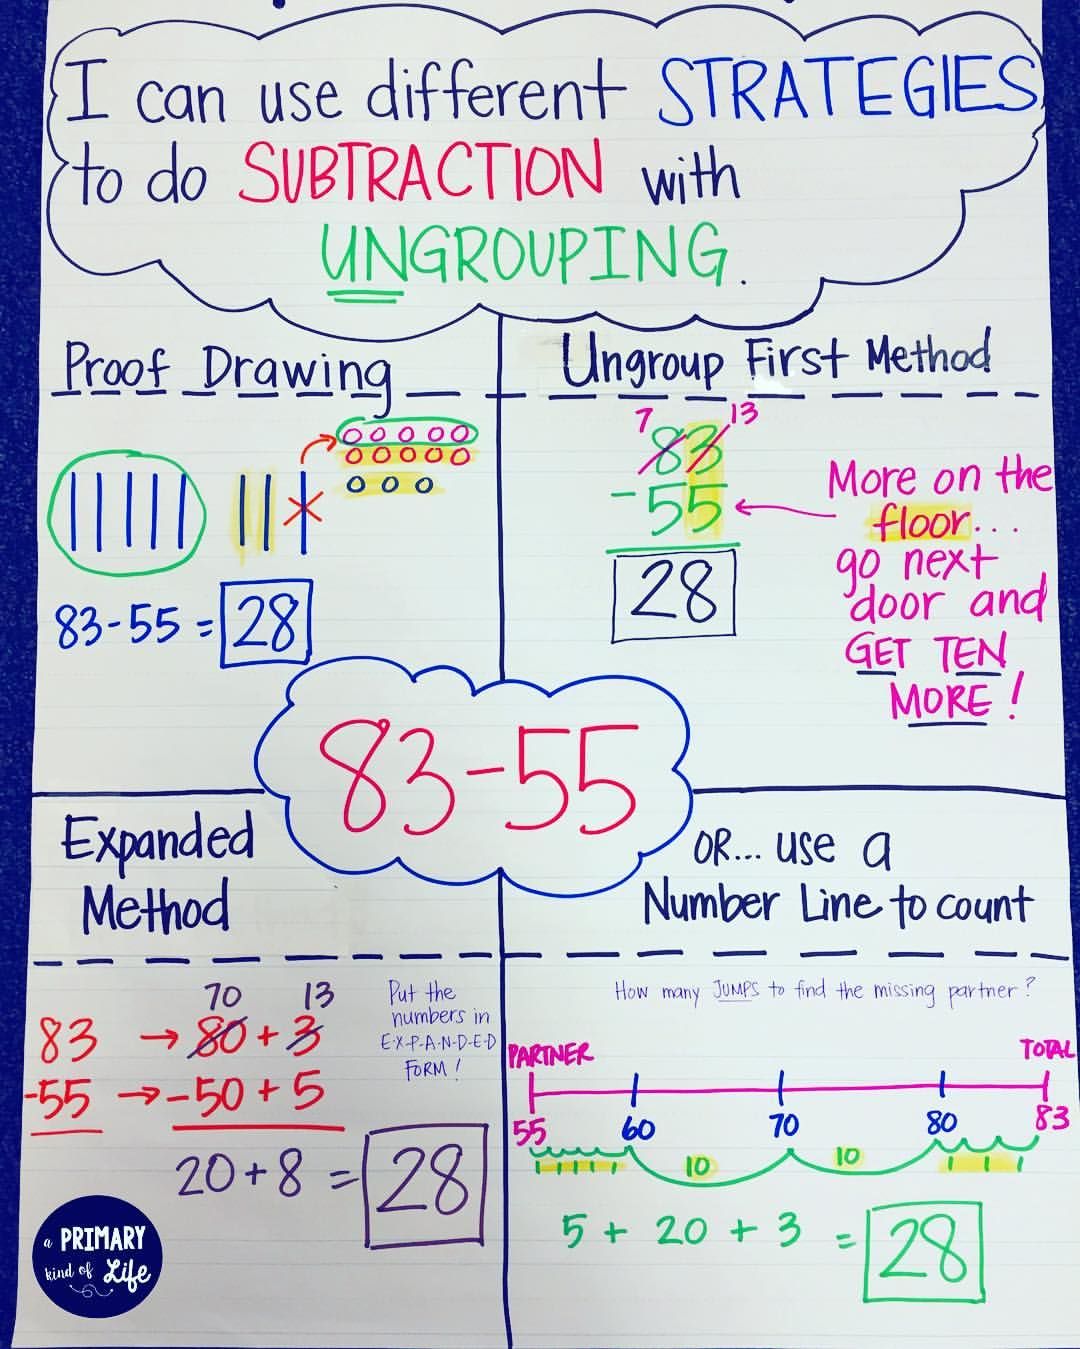 I can use different STRATEGIES
to do SUBTRACTION with
UNGROUPING.
Proof Drawing
83-55 = 28
Ungroup First Method
7 13
83
-55
28
More on the
floor...
go next
door and
GET TEN
MORE!
83-55
Expanded
Method
70 13
83 → 80 + 3
-55 → -50 + 5
20+8 = 28
Put the
numbers in
E-X-P-A-N-D-E-D
FORM!
OR... use a
Number Line to count
How many JUMPS to find the missing partner?
PARTNER TOTAL
55 60 70 80 83
10 10
5 + 20 + 3 = 28
a PRIMARY
kind of Life